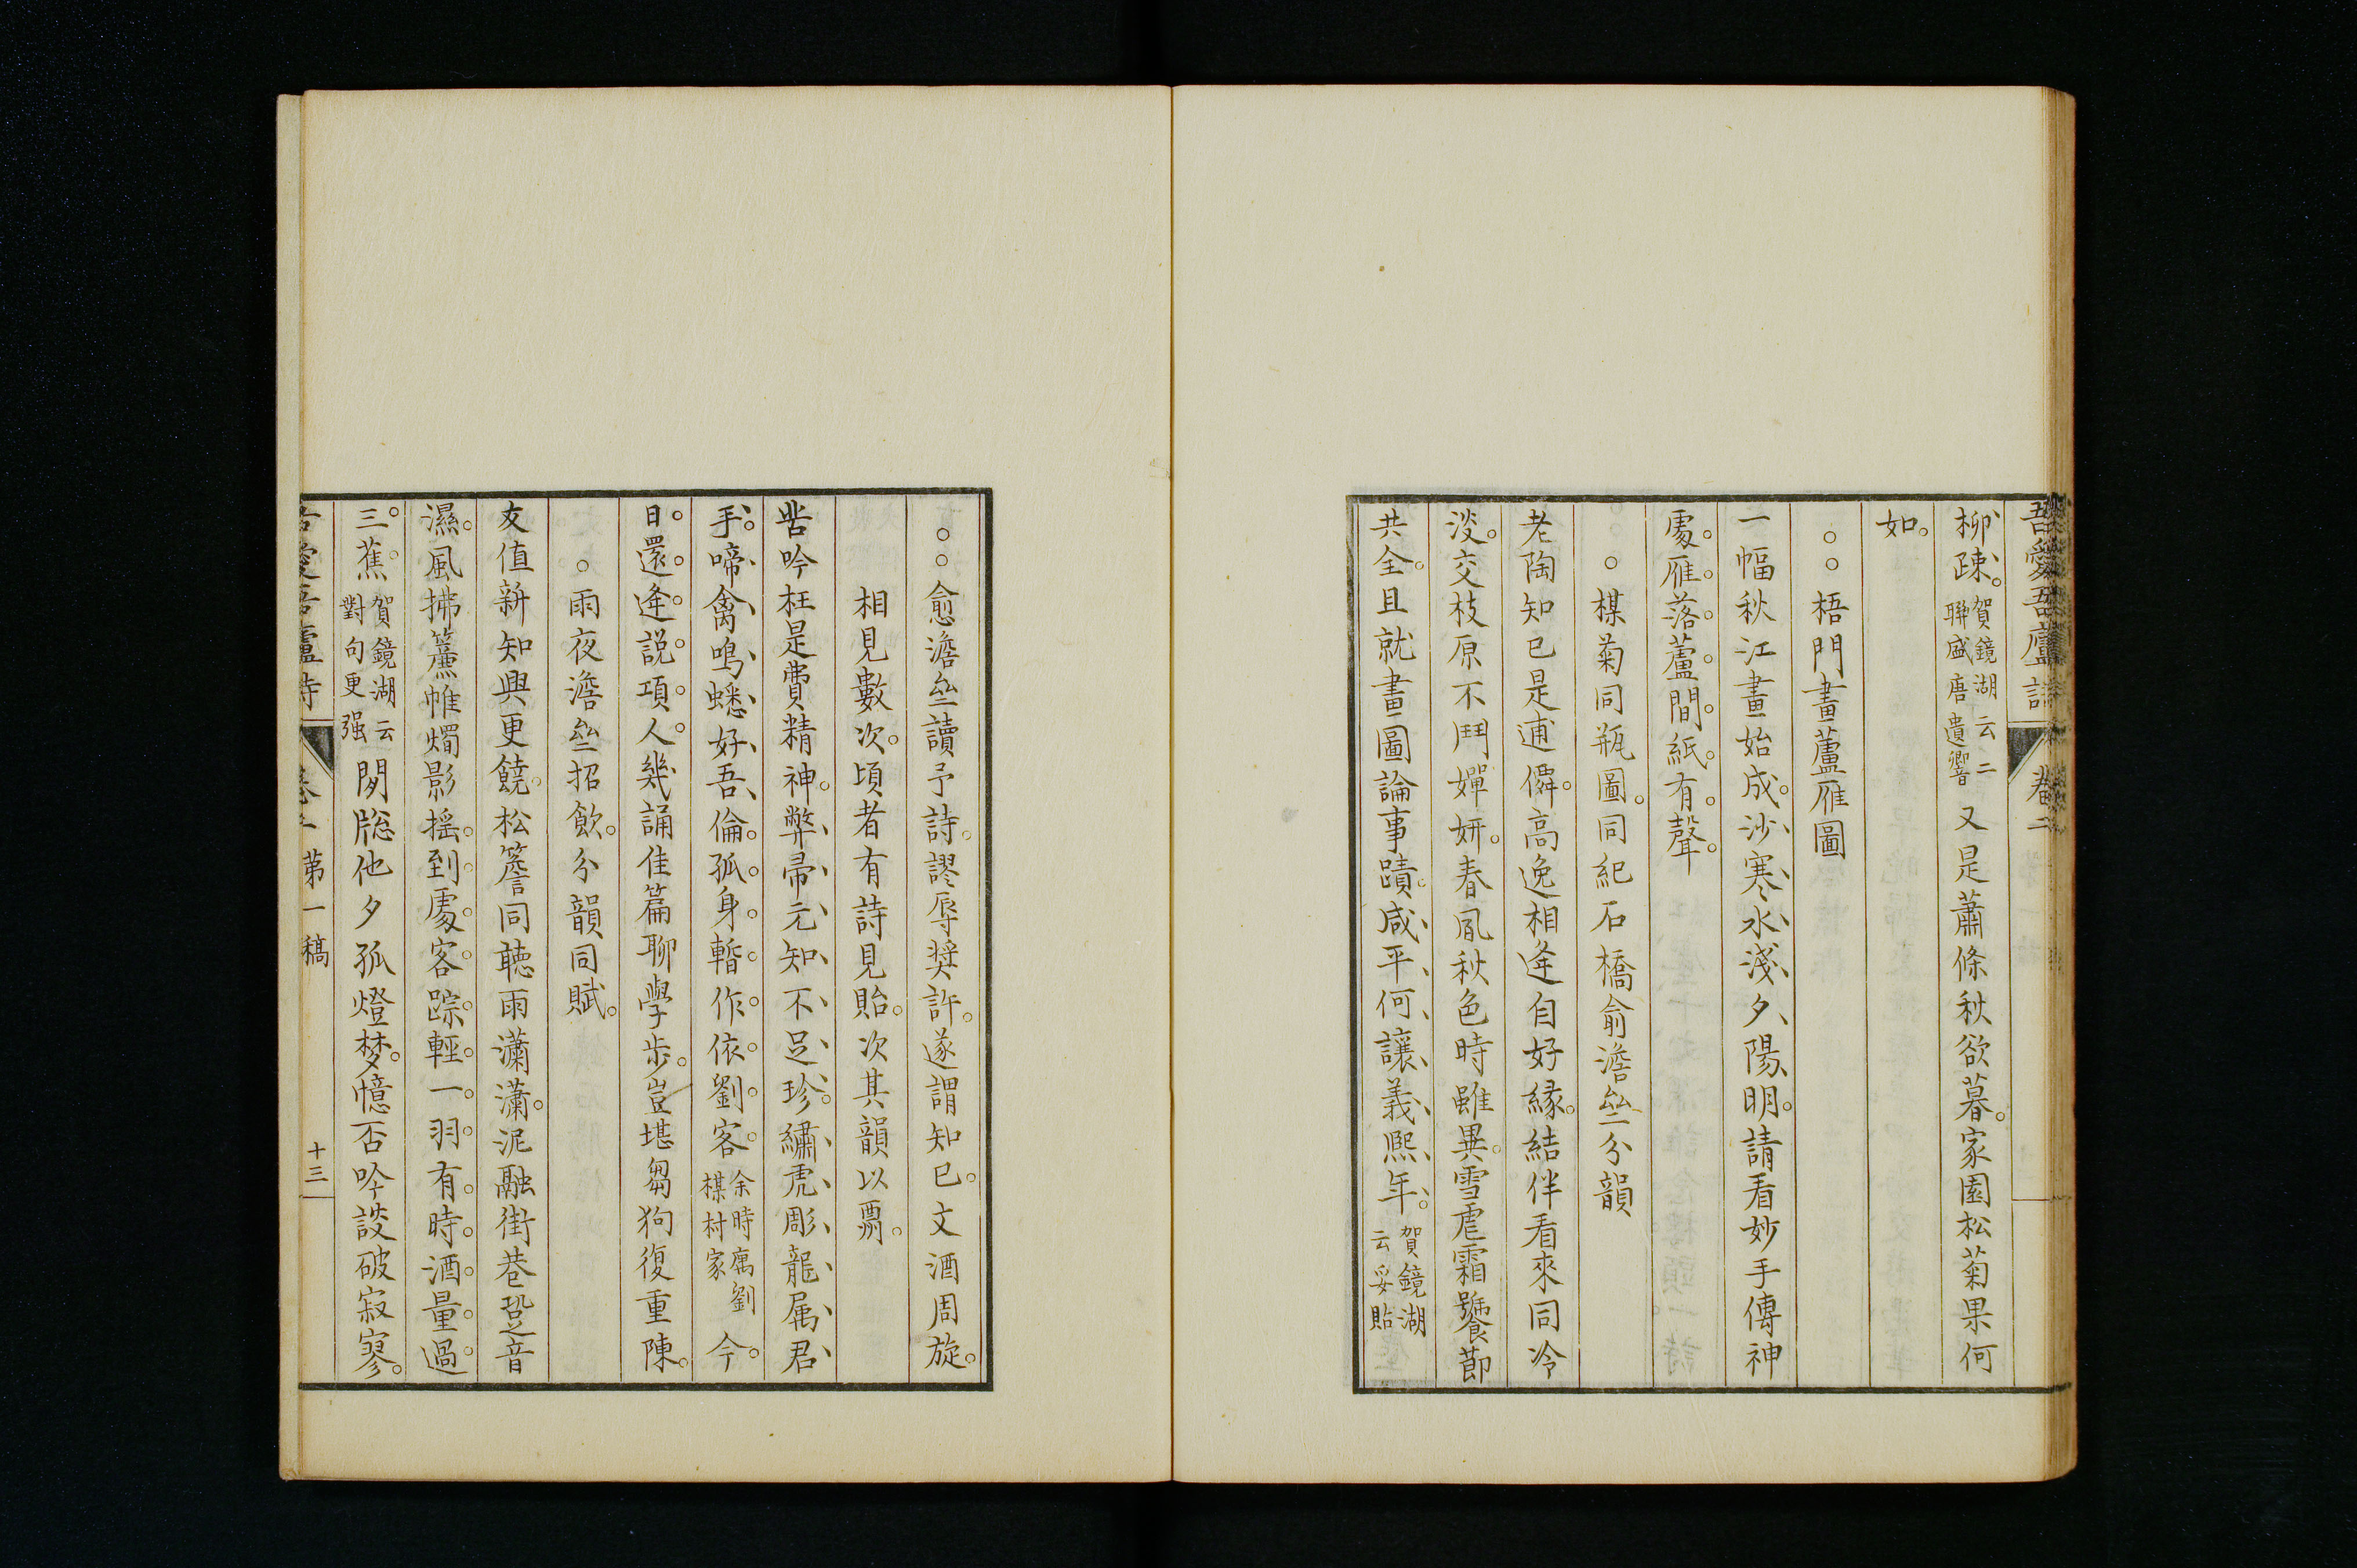 吾愛吾廬詩 卷二
柳疎。賀鏡湖云二聯盛唐遺響又是蕭條秋欲暮。家園松菊果何
如。
○○梧門畫蘆雁圖
一幅秋江畫始成。沙、寒、水、淺、夕、陽、明。請看妙手傳神
處。雁。落。蘆。間。紙。有。聲。
○楳菊同瓶圖。同紀石橋俞澹𡊨分韻
老陶知已是逋僊。高逸相逢自好緣。結伴看來同冷
淡。交枝原不鬥嬋妍。春風秋色時雖異。雪虐霜饕節
共全。且就畫圖論事蹟。咸、平、何、讓、義、熙、年。賀鏡湖云妥貼
○○愈澹𡊨讀予詩。謬辱奬許。遂謂知已。文酒周旋。
相見數次。頃者有詩見貽。次其韻以
昔吟枉是費精神。弊、帚、元、知、不、足、珍。繡、虎、彫、龍、属、君、
手。啼、禽、鳴、蟋、好、吾、倫。孤。身。暫。作。依。劉。客。余時寓劉楳村家今。
日。還。逢。説。項。人。幾誦佳篇聊學步。豈堪芻狗復重陳。
○雨夜澹𡊨招飲。分韻同賦。
友值新知興更饒。松簷同聽雨瀟瀟。泥融街巷跫音
濕。風拂簾帷燭影搖。到。處。客。踪。輕。一。羽。有。時。酒。量。過。
三。蕉。賀鏡湖云對句更强閒牎他夕孤燈梦。憶否吟談破寂寥。
吾愛吾廬詩 卷二 第一稿 十三